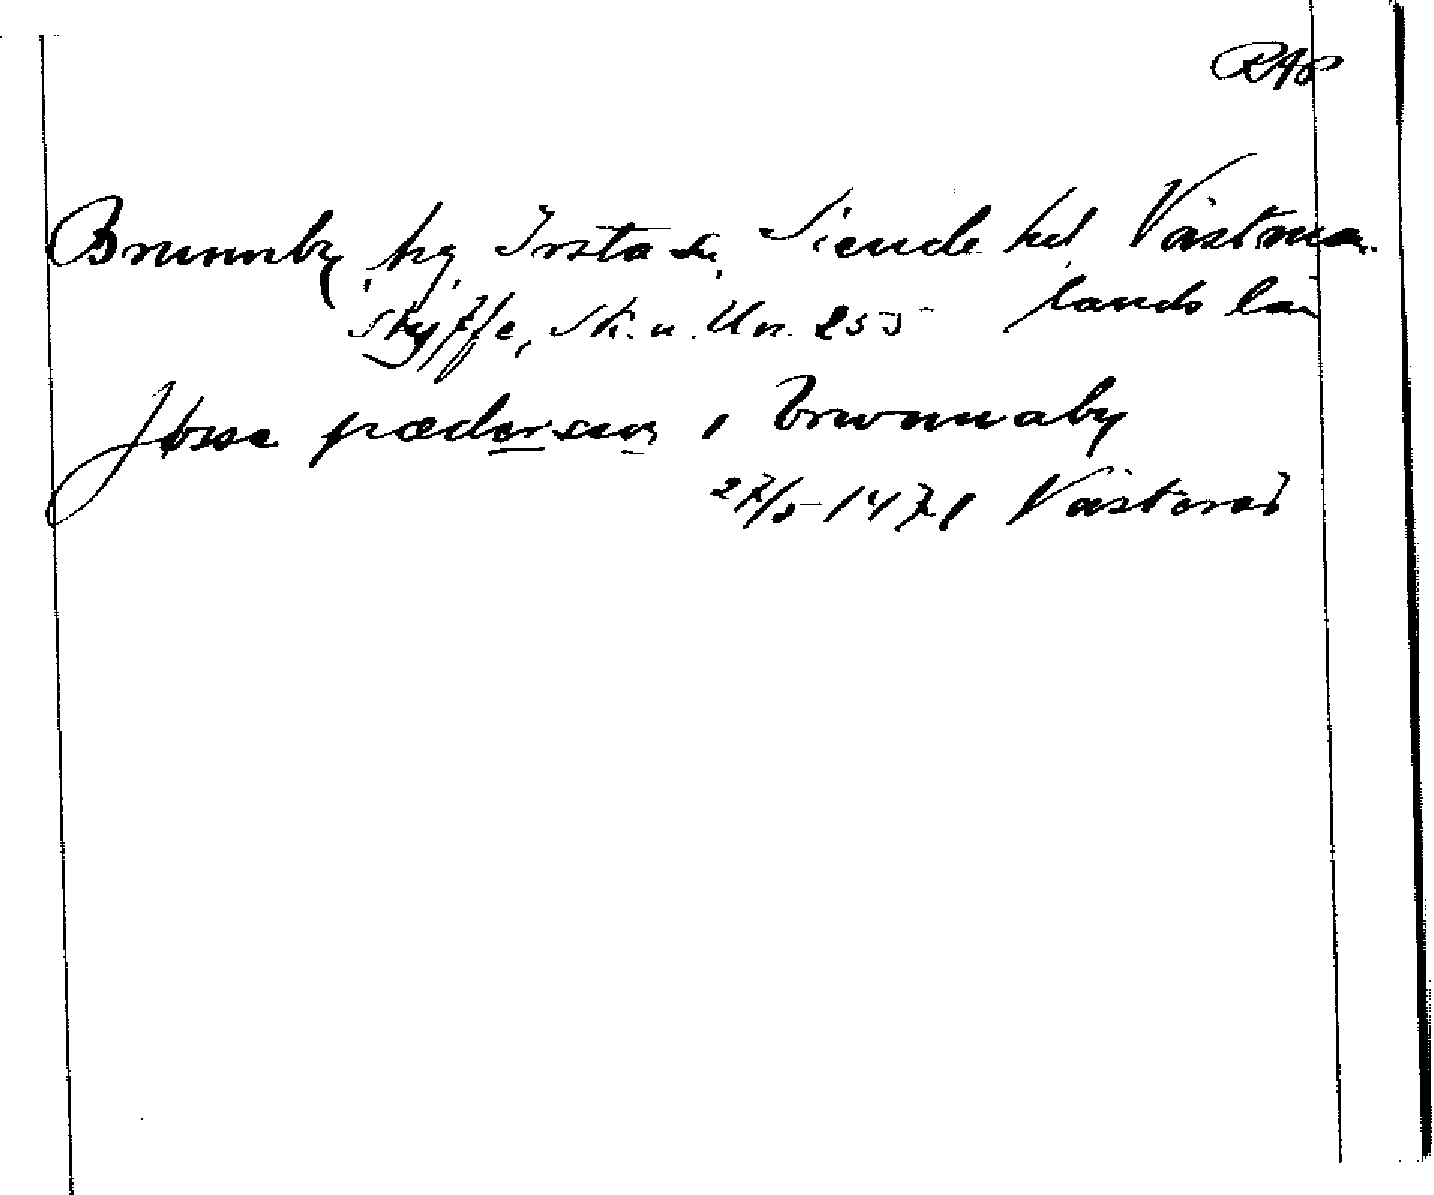 RAp
Brunnby, by, Irsta sn, Siende hd, Västman-
lands län
Styffe, Sk. u. Un. 255
Jösse pædersson i brwnnaby
27/5 1471 Västerås